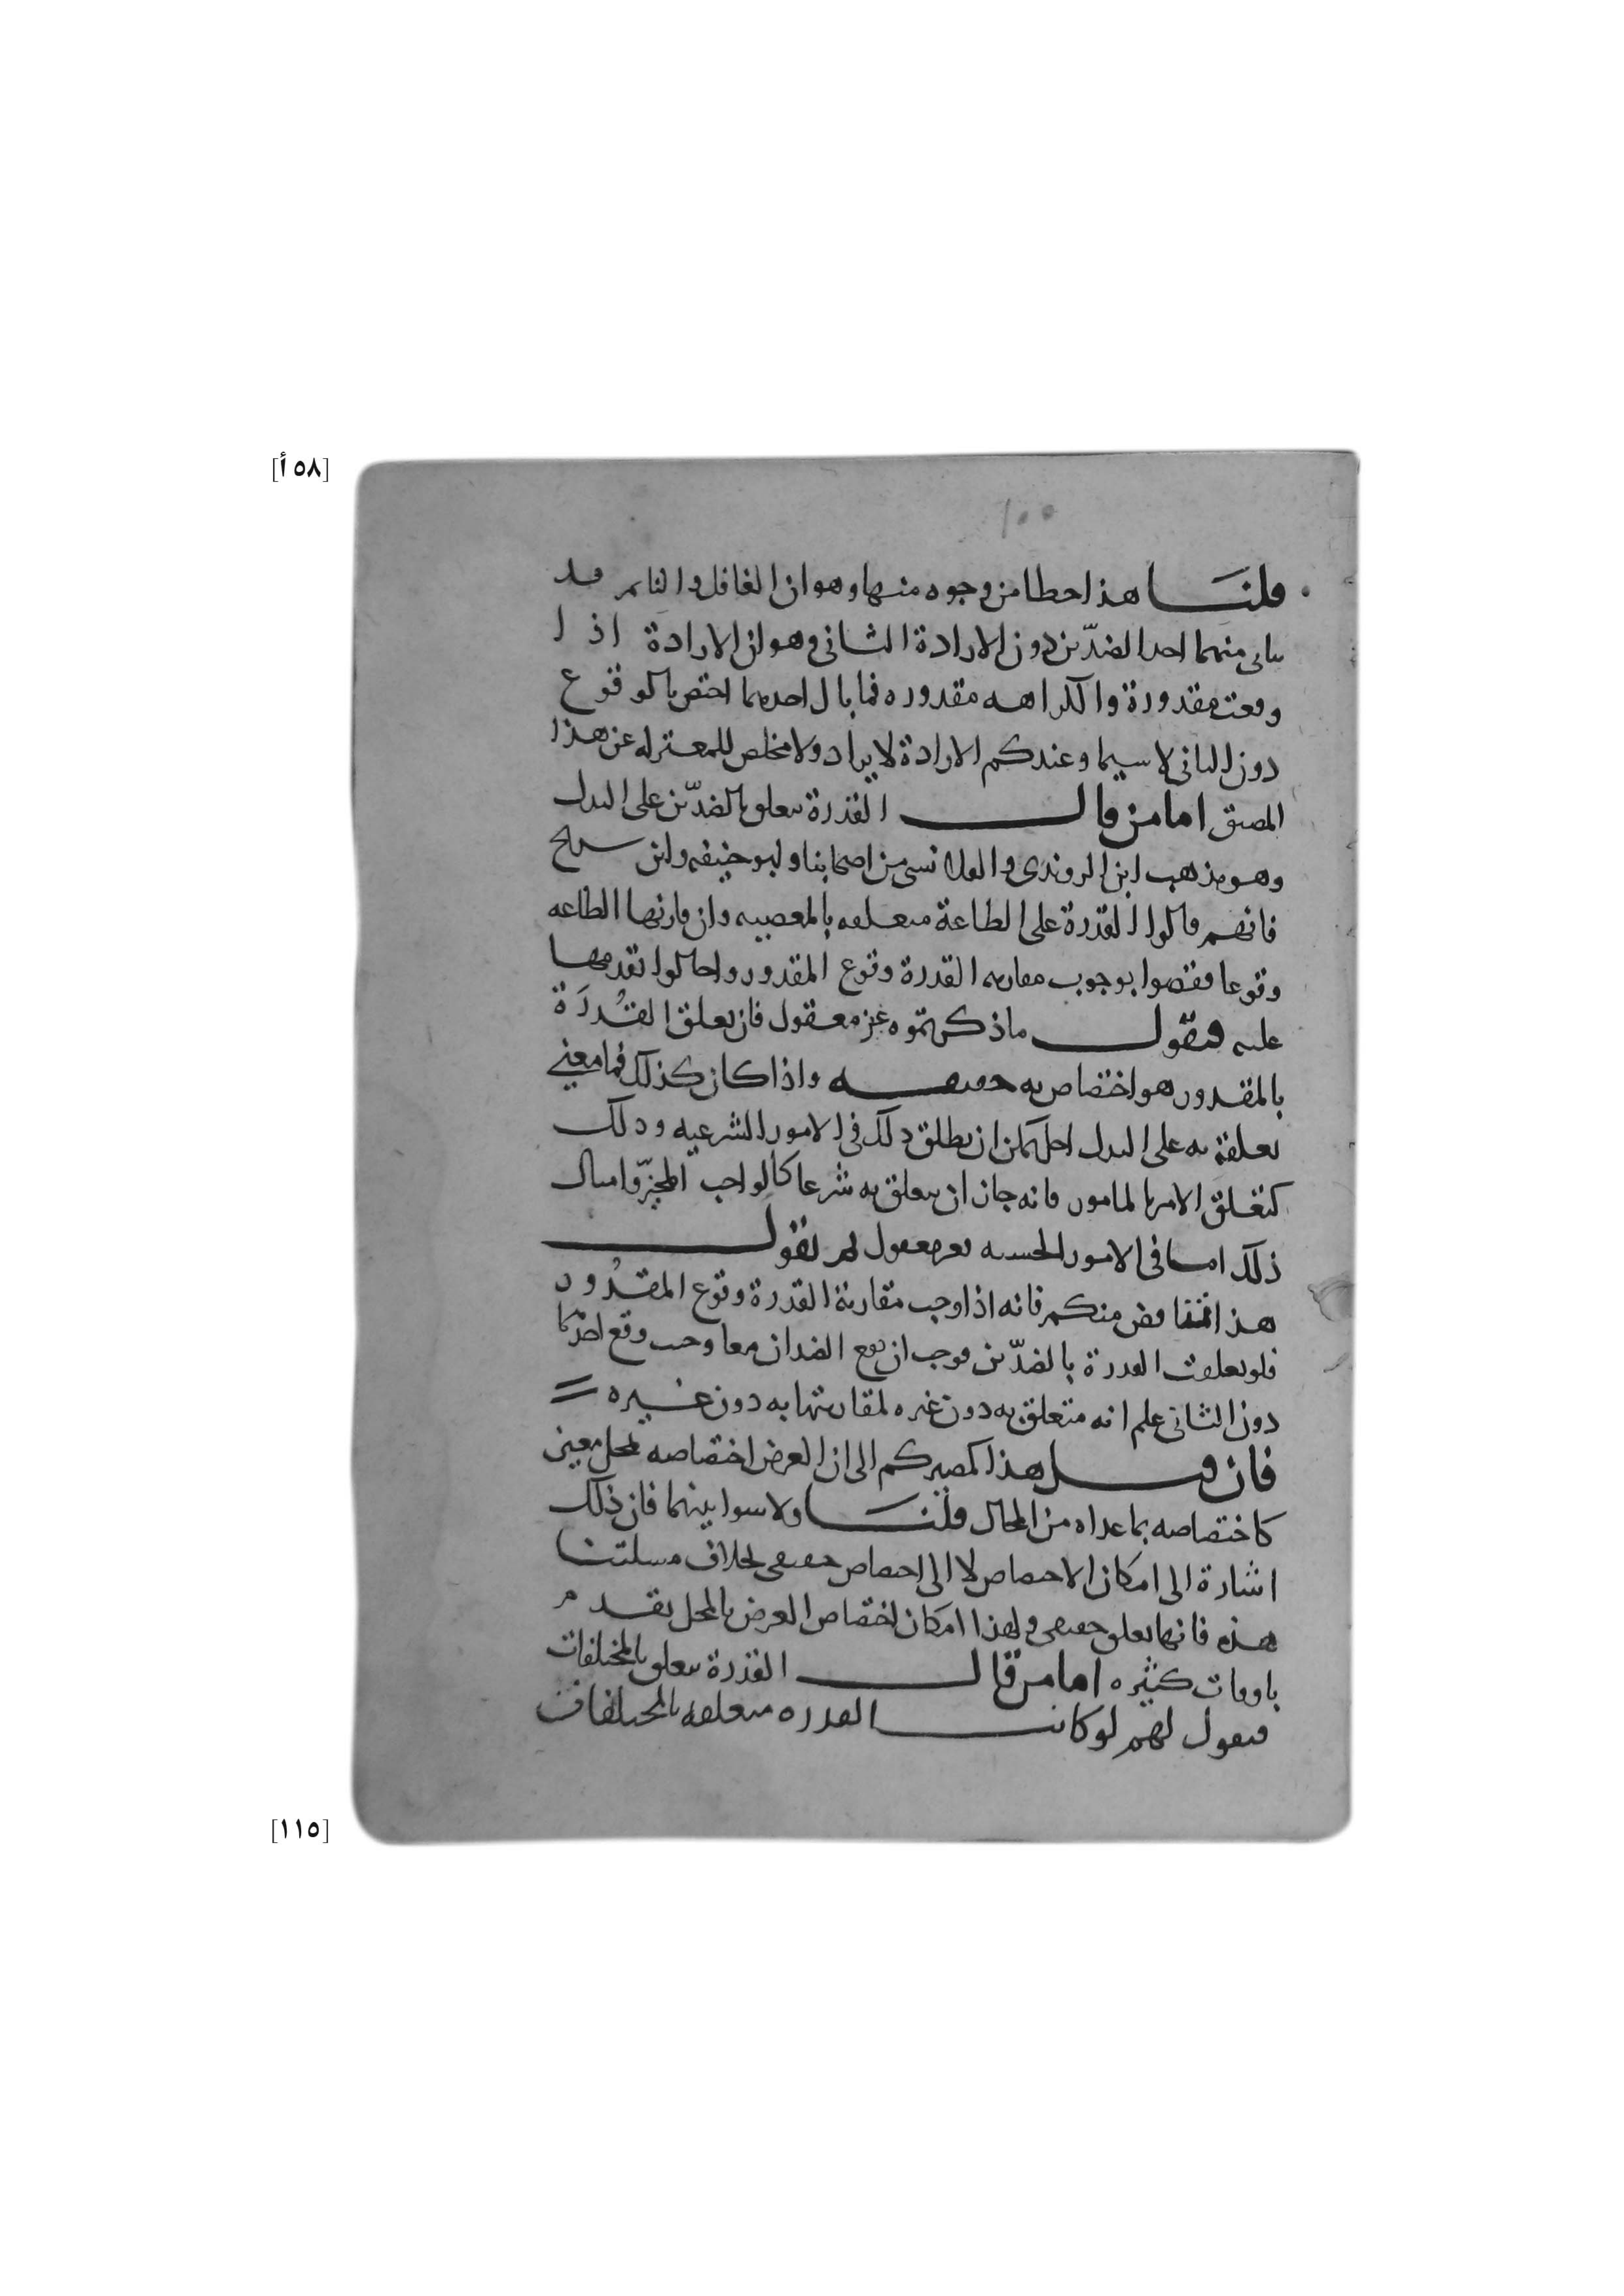 [٥٨ أ]
١٠٠
قلنا هذا خطا من وجوه منها وهو ان الغافل والنايم قد
ياتي منهما احد الضدّين دون الارادة الثاني وهو ان الارادة اذا
وقعت مقدورة والكراهه مقدوره فما بال احديهما اختص بالوقوع
دون الثاني لا سيما وعندكم الارادة لا يراد ولا مخلص للمعتزله عن هذا
المضيق اما من قال القدرة تتعلق بالضدّين على البدل
وهو مذهب ابن الروندي والقلانسي من اصحابنا وابو حنيفه وابن سريج
فانهم قالوا القدرة على الطاعة متعلقه بالمعصيه وان قارنها الطاعه
وقوعا فقضوا بوجوب مقارنه القدرة وقوع المقدور واحالوا تقدمها
عليه فنقول ما ذكرتموه غير معقول فان تعلق القُدرَة
بالمقدور هو اختصاص به حقيقه واذا كان كذلك فما معنى
تعلقه به على البدل اجل يمكن ان يطلق ذلك في الامور الشرعيه وذلك
كتعلق الامر بالمامور فانه جاز ان يتعلق به شرعا كالواجب المخيّر وامثال
ذلك اما في الامور الحسيه فغير معقول ثم نقول
هذا تناقض منكم فانه اذا وجب مقارنة القدرة وقوع المقدُور
فلو تعلقت القدرة بالضدّين فوجب ان يقع الضدان معا وحيث وقع احدهما
دون الثاني علم انه متعلق به دون غيره لمقارنتها به دون غيره
فان قيل هذا كمصيركم الى ان العرض اختصاصه بمحل معين
كاختصاصه بما عداه من المحال قلنا ولا سوا بينهما فان ذلك
اشارة الى امكان الاختصاص لا الى اختصاص حقيقي بخلاف مسلتنا
هذه فانها تعلق حقيقي ولهذا امكان اختصاص العرض بالمحل يتقدم
باوقات كثيره اما من قال القدرة تتعلق بالمختلفات
فنقول لهم لو كانت القدره متعلقه بالمختلفات
[١١٥]